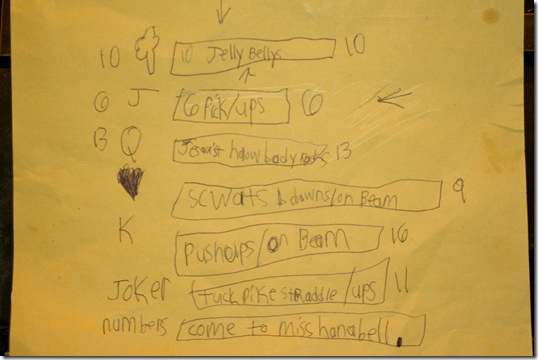 10 10 Jelly Bellys 10
6 J 6 pick/ups 6
13 Q hollow body 13
scwats downs/on Beam 9
K pushups/on Beam 16
Joker tuck pike straddle/ups 11
numbers come to miss hanabell.